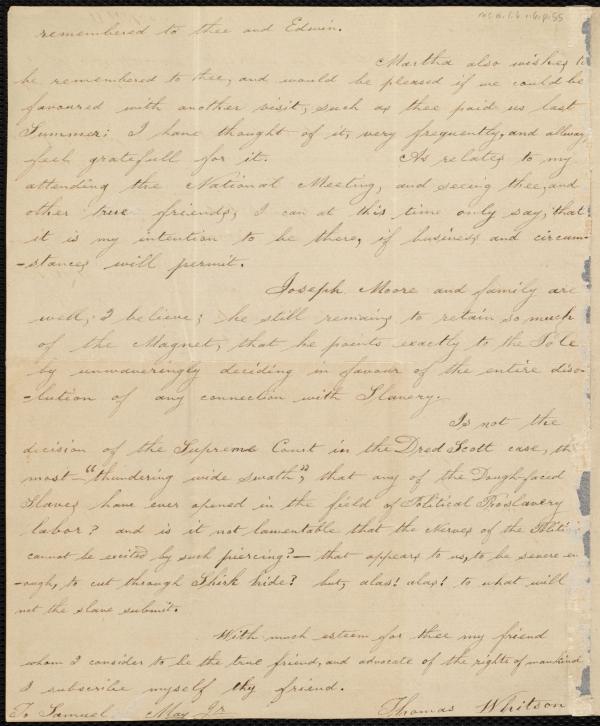 remembered to thee and Edwin.
Martha also wishes to
be remembered to thee, and would be pleased if we could be
favoured with another visit, such as thee paid us last
Summer; I have thought of it, very frequently, and allways
feel gratefull for it. As relates to my
attending the National Meeting, and seeing thee, and
other true friends, I can at this time only say, that
it is my intention to be there, if business and circum-
-stances will permit.
Joseph Moore and family are
well, I believe; he still remains to retain so much
of the Magnet, that he points exactly to the Pole
by unwaveringly deciding in favour of the entire diso-
-lution of any connection with Slavery.
Is not the
decision of the Supreme Court in the Dred Scott case, the
most "thundering wide swath", that any of the Dough-faced
Slaves have ever opened in the field of Political Proslavery
labor? and is it not lamentable that the Nerves of the
cannot be excited by such piercing?— that appears to us, to be severe en-
-ough, to cut through hide? but, alas! alas! to what will
not the slave submit.
With much esteem for thee my friend
whom I consider to be the true friend, and advocate of the rights of mankind
I subscribe myself thy friend.
To Samuel May Jr Thomas Whitson